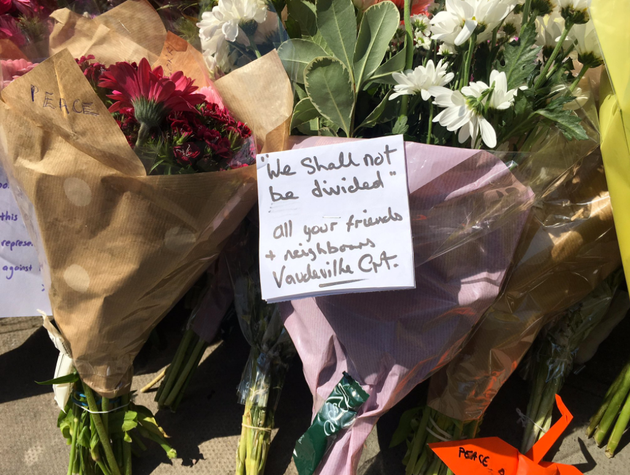 PEACE
"We Shall not
be divided"
all your friends
+ neighbours
Vaudeville Crt.
this
represen
against
PEACE